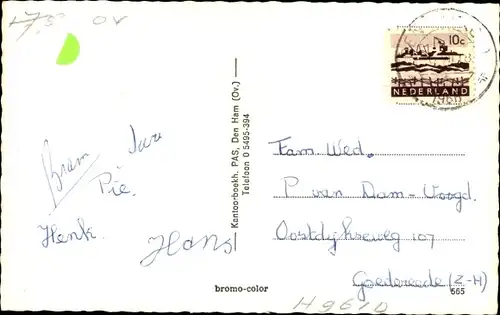 7,50 OV
10c
NEDERLAND
1966
Kantoorboekh. PAS, Den Ham (Ov.)
Telefoon 0 5495-394
Bram
Pie.
Henk.
Hans
Fam Wed.
P van Dam-Voogd.
Oostdijkseweg 107
Goedereede (Z-H)
565
bromo-color
H9610